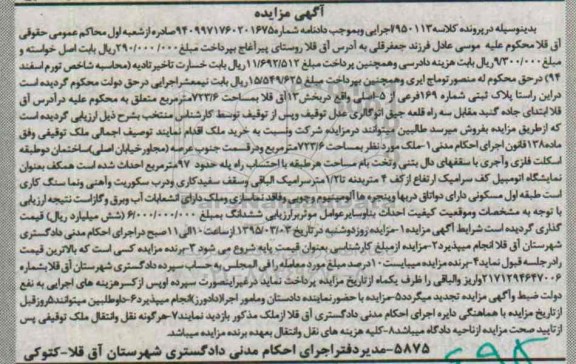 آگهی مزایده
بدینوسیله درپرونده کلاسه ۹۵۰۱۱۳ اجرایی وبموجب دادنامه شماره ۹۴۰۹۹۷۱۷۶۰۲۰۱۶۷۵ صادره از شعبه اول محاکم عمومی حقوقی
آق قلا محکوم علیه موسی عادل فرزند جعفرقلی به آدرس آق قلا روستای پیرآغاج بپرداخت مبلغ ۲۹۰/۰۰۰/۰۰۰ ریال بابت اصل خواسته و
مبلغ ۹/۳۰۰/۰۰۰ ریال بابت هزینه دادرسی وهمچنین پرداخت مبلغ ۱۱/۶۹۲/۵۱۲ ریال بابت خسارت تاخیر تادیه (محاسبه شاخص تورم اسفند
۹۴) درحق محکوم له منصور توماج ایری وهمچنین بپرداخت مبلغ ۱۵/۵۴۹/۶۲۵ ریال بابت نیم عشر اجرایی در حق دولت محکوم گردیده است
دراین راستا پلاک ثبتی شماره ۱۶۹ فرعی از ۵ اصلی واقع دربخش ۱۳ آق قلا بمساحت ۷۲۳/۶ مترمربع متعلق به محکوم علیه درآدرس آق
قلا ابتدای جاده گنبد مقابل سه راه قلعه جیق اتوگالری عدل توقیف وپس از توقیف توسط کارشناس منتخب بشرح ذیل ارزیابی گردیده است
که از طریق مزایده بفروش میرسد طالبین میتوانند درمزایده شرکت ونسبت به خرید ملک اقدام نمایند توصیف اجمالی ملک توقیفی وفق
ماده ۱۳۸ قانون اجرای احکام مدنی ۱-ملک مورد نظر بمساحت ۷۲۳/۶ مترمربع ودرقسمت جنوب عرصه (مجاور خیابان اصلی) ساختمان دوطبقه
اسکلت فلزی وآجری با سقفهای دال بتنی وتخت بام مساحت هرطبقه با احتساب راه پله حدود ۹۷ مترمربع احداث شده است همکف بعنوان
نمایشگاه اتومبیل کف سرامیک ارتفاع از کف ۴ متر بدنه تا ۱/۲ متر سرامیک الباقی وسقف سفیدکاری ودرب سکوریت وآهنی ونما سنگ کاری
است طبقه اول مسکونی دارای دواتاق دربها وپنجره ها آلمینیوم وچوبی وفاقد نماسازی وملک دارای انشعابات آب وبرق وگاز است نتیجه ارزیابی
با توجه به مشخصات وموقعیت کیفیت احداث بنا وسایر عوامل موثر بر ارزیابی ششدانگ بمبلغ ۶/۰۰۰/۰۰۰/۰۰۰ (شش میلیارد ریال) قیمت
گذاری گردیده است شرایط آگهی مزایده ۱-مزایده روز دوشنبه در تاریخ ۱۳۹۵/۰۳/۰۳ از ساعت ۱۰ الی ۱۱ صبح دراجرای احکام مدنی دادگستری
شهرستان آق قلا انجام میپذیرد ۲-مزایده از مبلغ کارشناسی بعنوان قیمت پایه شروع می شود ۳-برنده مزایده کسی است که بالاترین قیمت
را درجلسه قبول نماید ۴-برنده مزایده میبایست ۱۰ درصد مبلغ مورد معامله را فی المجلس به حساب سپرده دادگستری شهرستان آق قلا بشماره
۲۱۷۱۲۹۴۶۴۷۰۰۶ واریز والباقی را ظرف یکماه از تاریخ مزایده پرداخت نماید درغیر اینصورت سپرده اوپس از کسر هزینه های اجرایی به نفع
دولت ضبط وآگهی مزایده تجدید میگردد ۵-مزایده با حضور نماینده دادستان ومامور اجرا (دادورز) انجام میپذیرد ۶-داوطلبین میتوانند ۵ روز قبل
از تاریخ مزایده با هماهنگی دایره اجرای احکام مدنی دادگستری آق قلا از ملک مذکور بازدید نمایند ۷-هرگونه نقل وانتقال ملک توقیفی پس
از تایید صحت مزایده ازناحیه دادگاه میباشد ۸-کلیه هزینه های نقل وانتقال بعهده برنده مزایده میباشد
۵۸۷۵-مدیر دفتر اجرای احکام مدنی دادگستری شهرستان آق قلا-کتوکی